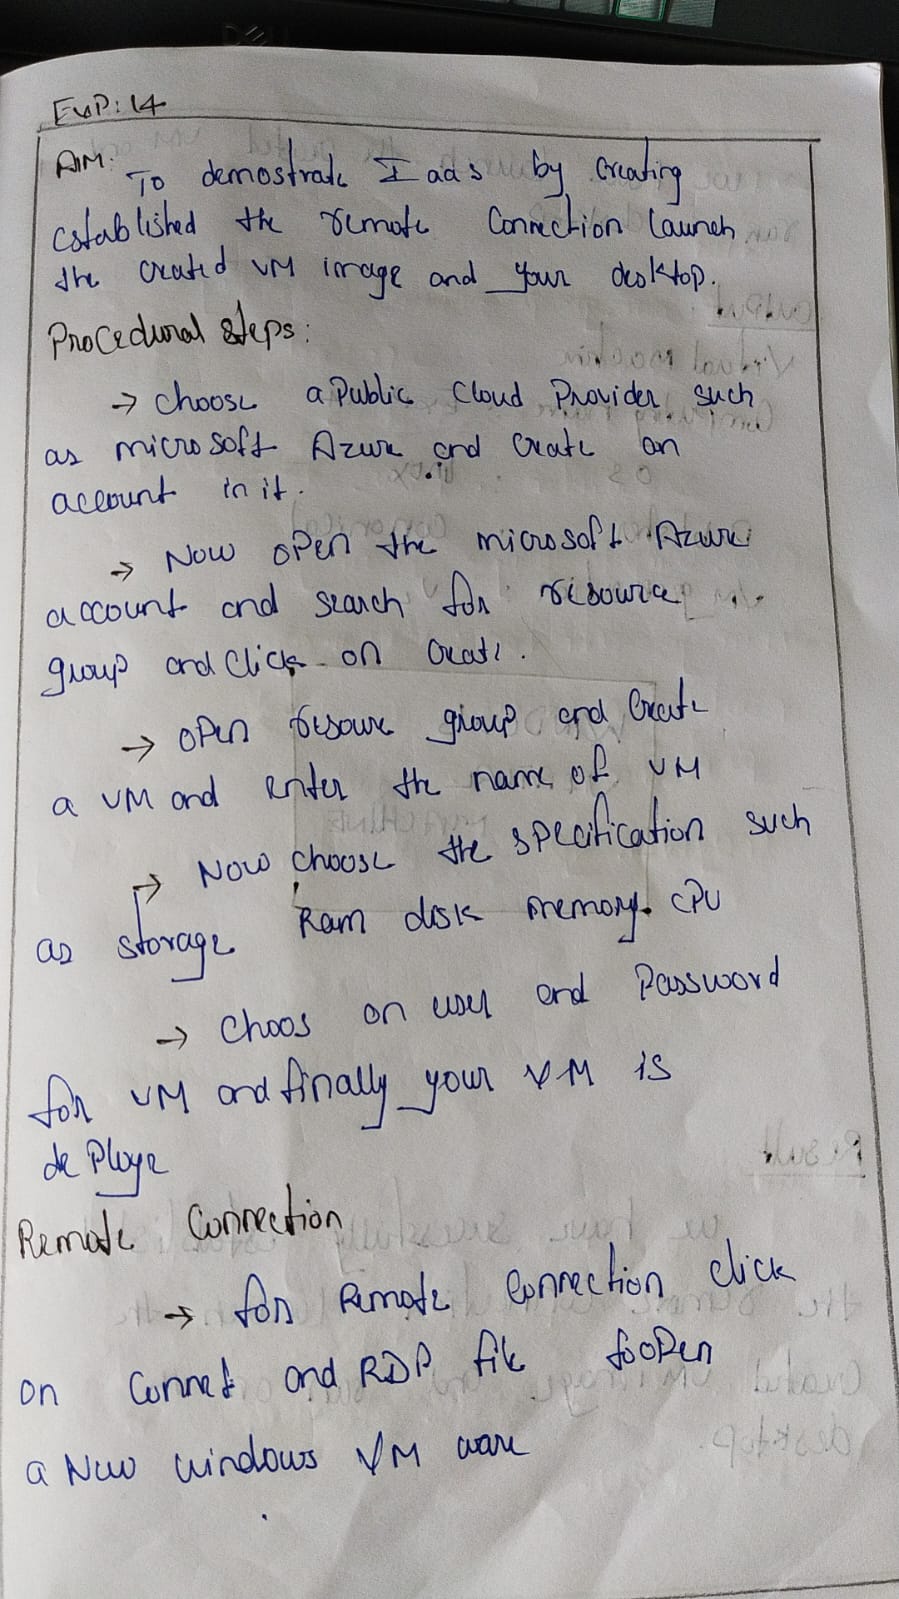 Exp: 14
AIM:
To demostrate Iaas by creating
established the remote Connection launch
the created VM image and your desktop.
Procedural steps:
→ choose a Public Cloud Provider such
as microsoft Azure and Create an
account in it.
→ Now open the microsoft Azure
account and search for resource
group and click on Create.
→ open resoure group and Create
a VM and enter the name of VM
→ Now choose the specification such
as storage Ram disk memory. CPU
→ Choos on user and Password
for VM and finally your VM is
deploye
Remote Connection
→ for Remote Connection click
on Connet and RDP file to open
a New windows VM ware